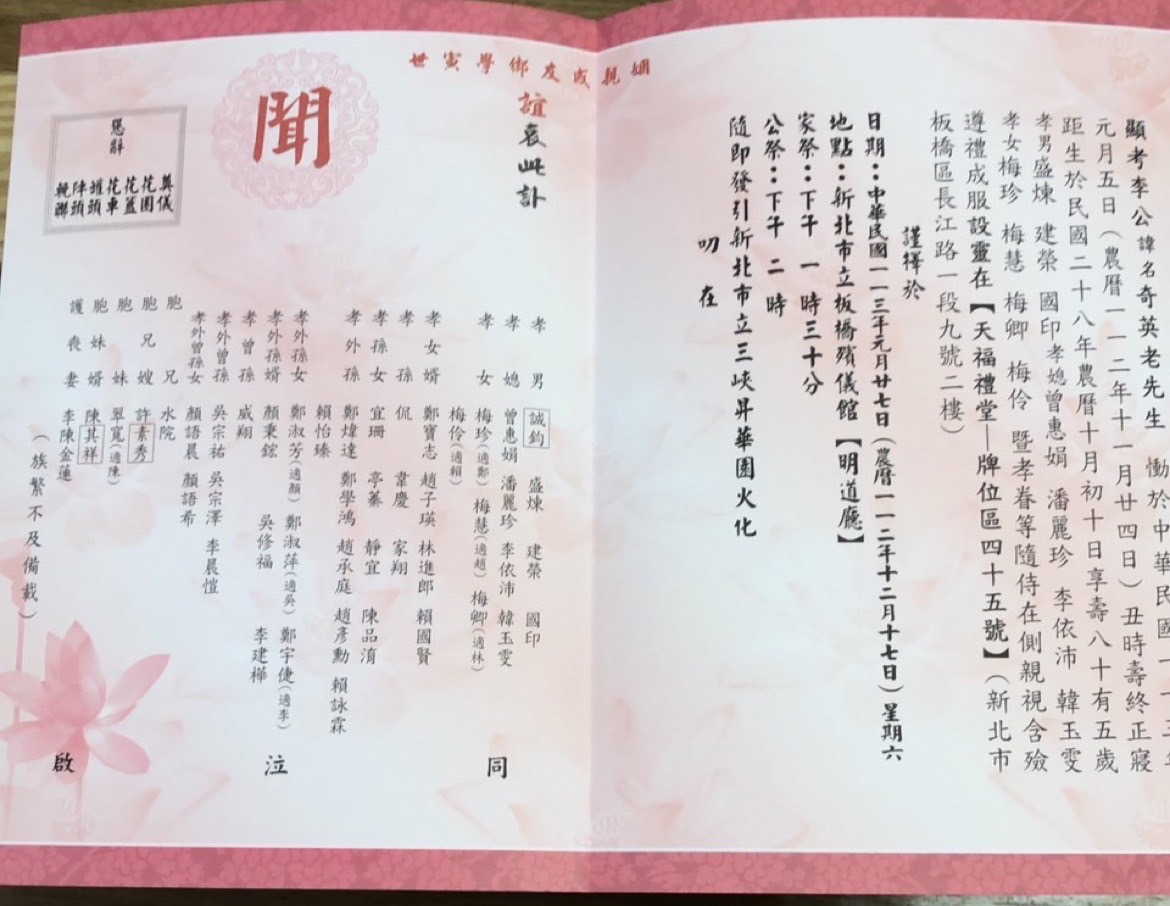 顯考李公諱名奇英老先生 慟於中華民國一一三年
元月五日(農曆一一二年十一月廿四日)丑時壽終正寢
距生於民國二十八年農曆十月初十日享壽八十有五歲
孝男盛煉 建榮 國印孝媳曾惠娟 潘麗珍 李依沛 韓玉雯
孝女梅珍 梅慧 梅卿 梅伶 暨孝眷等隨侍在側親視含殮
遵禮成服設靈在【天福禮堂—牌位區四十五號】(新北市
板橋區長江路一段九號二樓)
謹擇於
日期:中華民國一一三年元月廿七日(農曆一一二年十二月十七日)星期六
地點:新北市立板橋殯儀館【明道廳】
家祭:下午 一 時三十分
公祭:下午 二 時
隨即發引新北市立三峽昇華園火化
叨在
姻親戚友鄉學寅世
誼哀此訃
聞
懇辭
奠儀
花圈
花籃
花車
罐頭
陣頭
輓聯
孝男 誠鈞 盛煉 建榮 國印
孝媳 曾惠娟 潘麗珍 李依沛 韓玉雯
孝女 梅珍(適鄭) 梅慧(適趙) 梅卿(適林)
梅伶(適賴)
孝女婿 鄭寶志 趙子瑛 林進郎 賴國賢
孝孫 侃 韋慶 家翔
孝孫女 宜珊 亭蓁 靜宜 陳品淯
孝外孫 鄭煒達 鄭學鴻 趙承庭 趙彥勳 賴詠霖
賴怡臻
孝外孫女 鄭淑芳(適顏) 鄭淑萍(適吳) 鄭宇倢(適李)
孝外孫婿 顏秉鋐 吳修福 李建樺
孝曾孫 威翔
孝外曾孫 吳宗祐 吳宗澤 李晨愷
孝外曾孫女 顏語晨 顏語希
胞兄 水院
胞兄嫂 許素秀
胞妹 翠寬(適陳)
胞妹婿 陳其祥
護喪妻 李陳金蓮
(族繁不及備載)
同 泣 啟